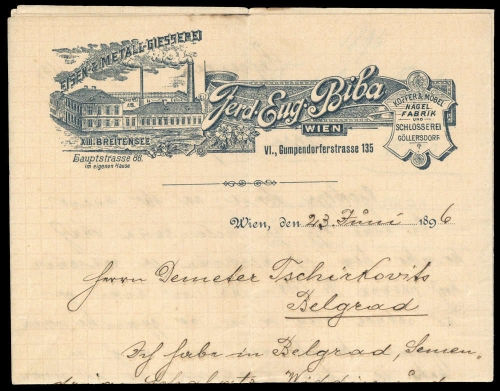 EISEN- & METALL-GIESSEREI
XIII. BREITENSEE
Hauptstrasse 66.
im eigenen Hause
Ferd. Eug. Biba
WIEN
VI., Gumpendorferstrasse 135
KOFFER & MÖBEL
NAGEL
FABRIK
UND
SCHLOSSEREI
GÖLLERSDORF
Wien, den 23 Juni 1896
Herrn Demeter Tschirkovits
Belgrad
Ich habe in Belgrad, Semen-
dria, Widdin und